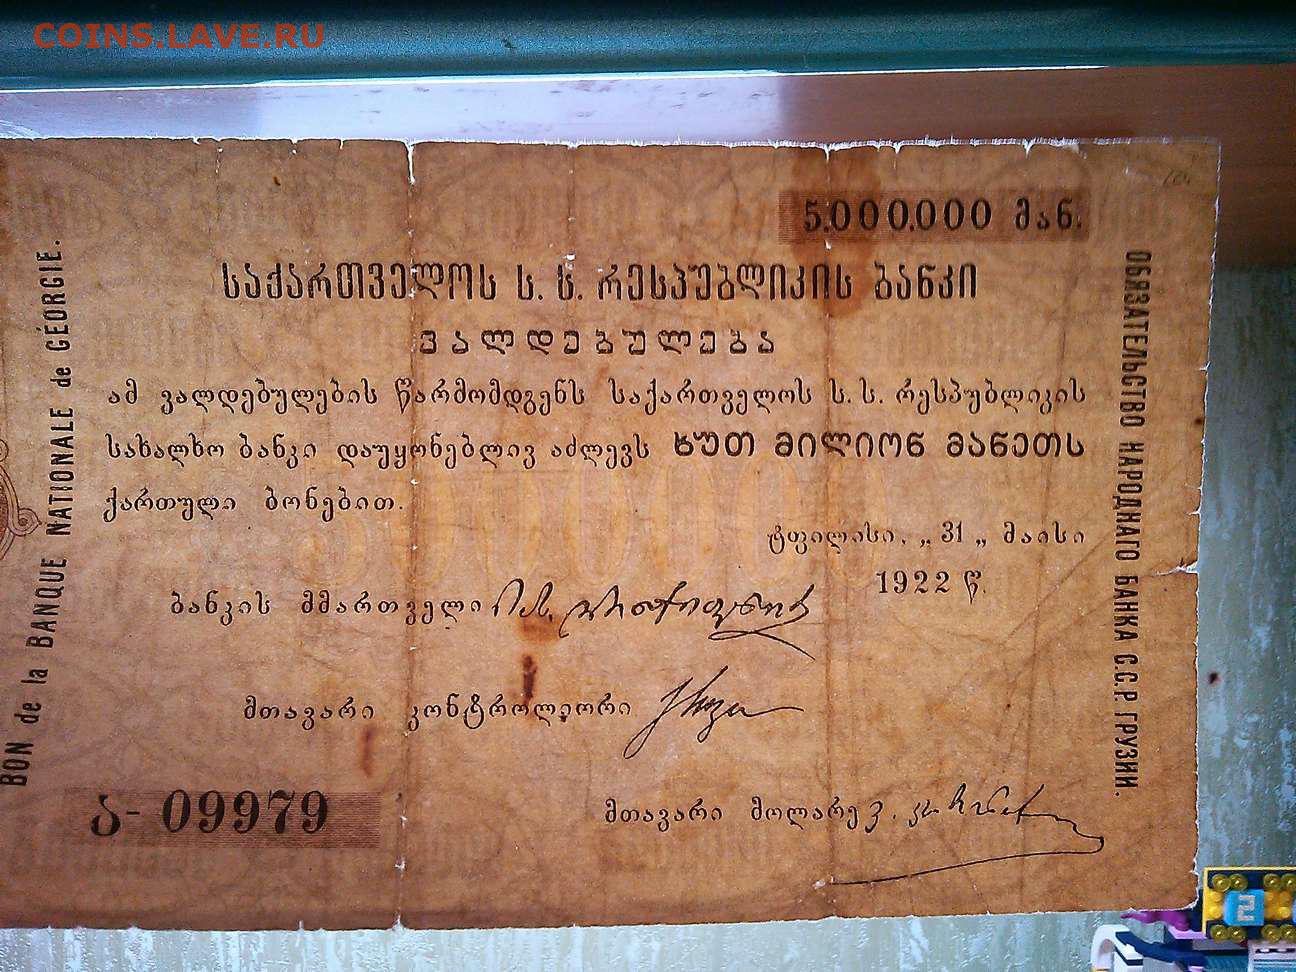 COINS.LAVE.RU
5.000.000 მან.
საქართველოს ს. ს. რესპუბლიკის ბანკი
ვალდებულება
ამ ვალდებულების წარმომდგენს საქართველოს ს. ს. რესპუბლიკის
სახალხო ბანკი დაუყონებლივ აძლევს ხუთ მილიონ მანეთს
ქართული ბონებით.
ტფილისი, „ 31 „ მაისი
1922 წ.
ბანკის მმართველი
მთავარი კონტროლიორი
მთავარი მოლარე
ა- 09979
BON de la BANQUE NATIONALE de GÉORGIE.
ОБЯЗАТЕЛЬСТВО НАРОДНАГО БАНКА С.С.Р. ГРУЗИИ.
2